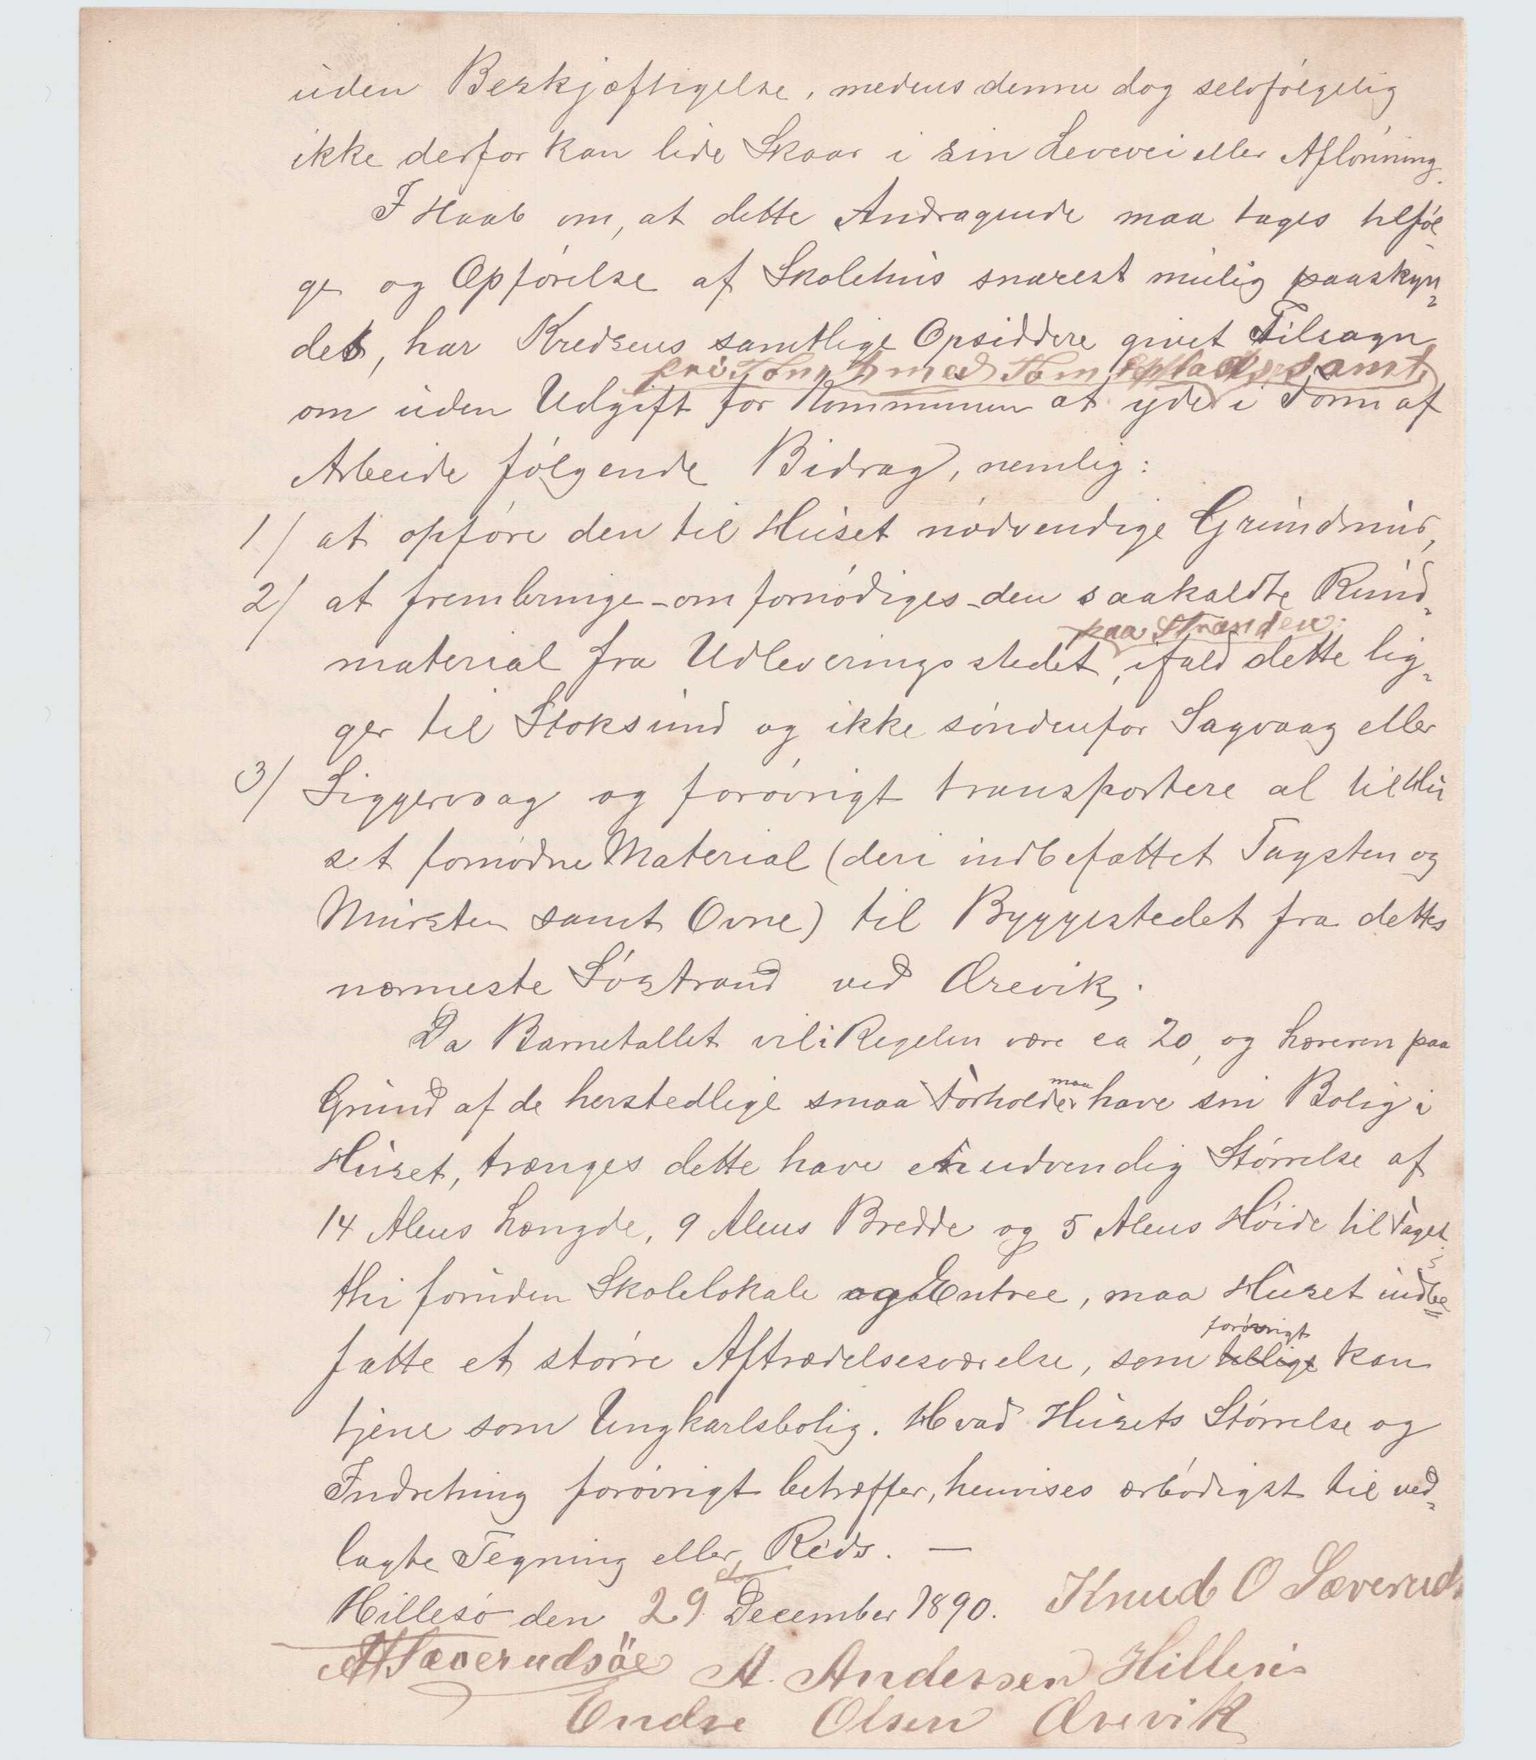 uden Beskjæftigelse, medens denne dog selvfølgelig
ikke derfor kan lide Skaar i sin Levevei eller Aflønning.
I Haab om, at dette Andragende maa tages tilføl-
ge og Opførelse af Skolehus snarest mulig paaskyn-
det, har Kredsens samtlige Opsiddere givet Tilsagn
fri Tomt med samt
om uden Udgift for Kommunen at yde i Form af
Arbeide følgende Bidrag, nemlig:
1/ at opføre den til Huset nødvendige Grundmur,
2/ at frembringe - om fornødiges - den saakaldte Rund-
paa Stranden
material fra Udleveringsstedet, ifald dette lig-
ger til Stoksund og ikke søndenfor Sagvaag eller
3/ Siggervaag og forøvrigt transportere al til Hu
set fornødne Material (deri indbefattet Tagsten og
Mursten samt Ovne) til Byggestedet fra dettes
nærmeste Søstrand ved Ærevik.
Da Barnetallet vil i Regelen være ca 20, og Læreren paa
maa
Grund af de herstedlige smaa Forholde have sin Bolig i
Huset, trænges dette have en udvendig Størrelse af
14 Alens Længde, 9 Alens Bredde og 5 Alens Høide til Taget;
thi foruden Skolelokale og Entree, maa Huset indbe
forøvrigt
fatte et større Aftrædelsesværelse, som tillige kan
tjene som Ungkarlsbolig. Hvad Husets Størrelse og
Indretning forøvrigt betræffer, henvises ærbødigst til ved-
lagte Tegning eller Rids. —
Hillesø den 29 December 1890. Knud O Sæverud
A H Sæverudsöe A. Andersen Hillesø
Endre Olsen Ærevik